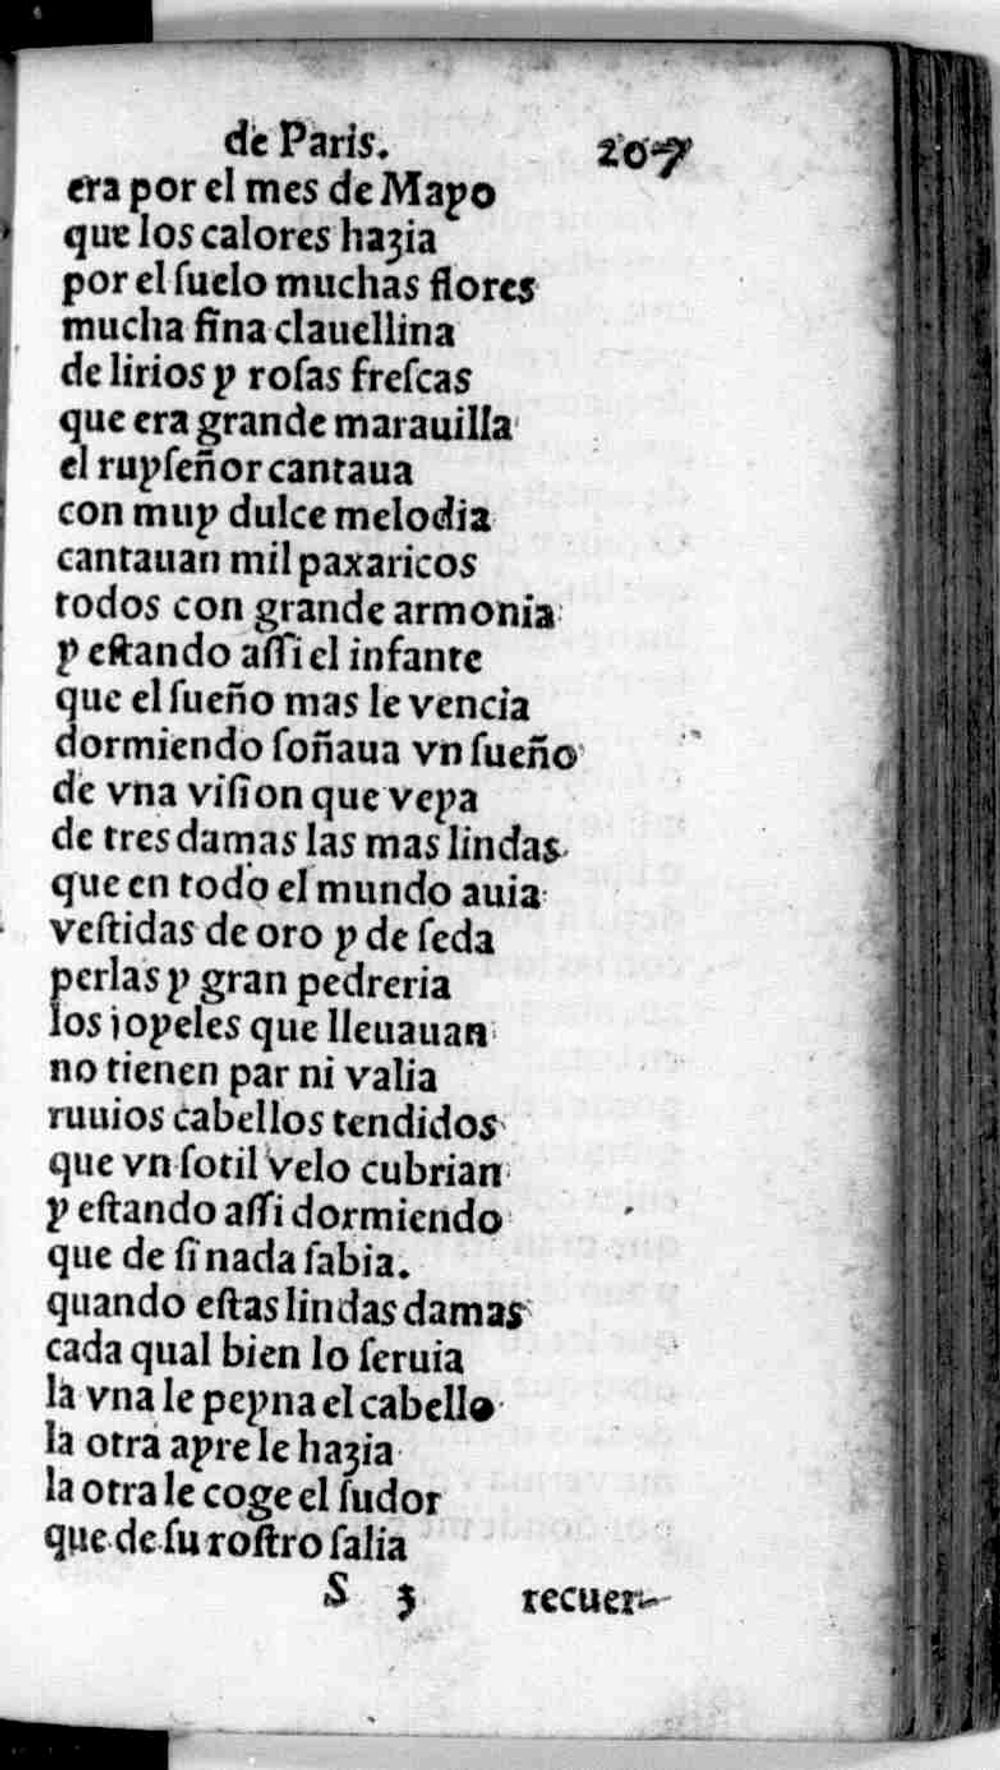 de Paris. 207
era por el mes de Mayo
que los calores hazia
por el ſuelo muchas flores
mucha fina clauellina
de lirios y roſas freſcas
que era grande marauilla
el ruyſeñor cantaua
con muy dulce melodia
cantauan mil paxaricos
todos con grande armonia
y eſtando aſſi el infante
que el ſueño mas le vencia
dormiendo ſoñaua vn ſueño
de vna viſion que veya
de tres damas las mas lindas
que en todo el mundo auia
veſtidas de oro y de ſeda
perlas y gran pedreria
los ioyeles que lleuauan
no tienen par ni valia
ruuios cabellos tendidos
que vn ſotil velo cubrian
y eſtando aſſi dormiendo
que de ſi nada ſabia.
quando eſtas lindas damas
cada qual bien lo ſeruia
la vna le peyna el cabello
la otra ayre le hazia
la otra le coge el ſudor
que de ſu roſtro ſalia
S 3 recuer-